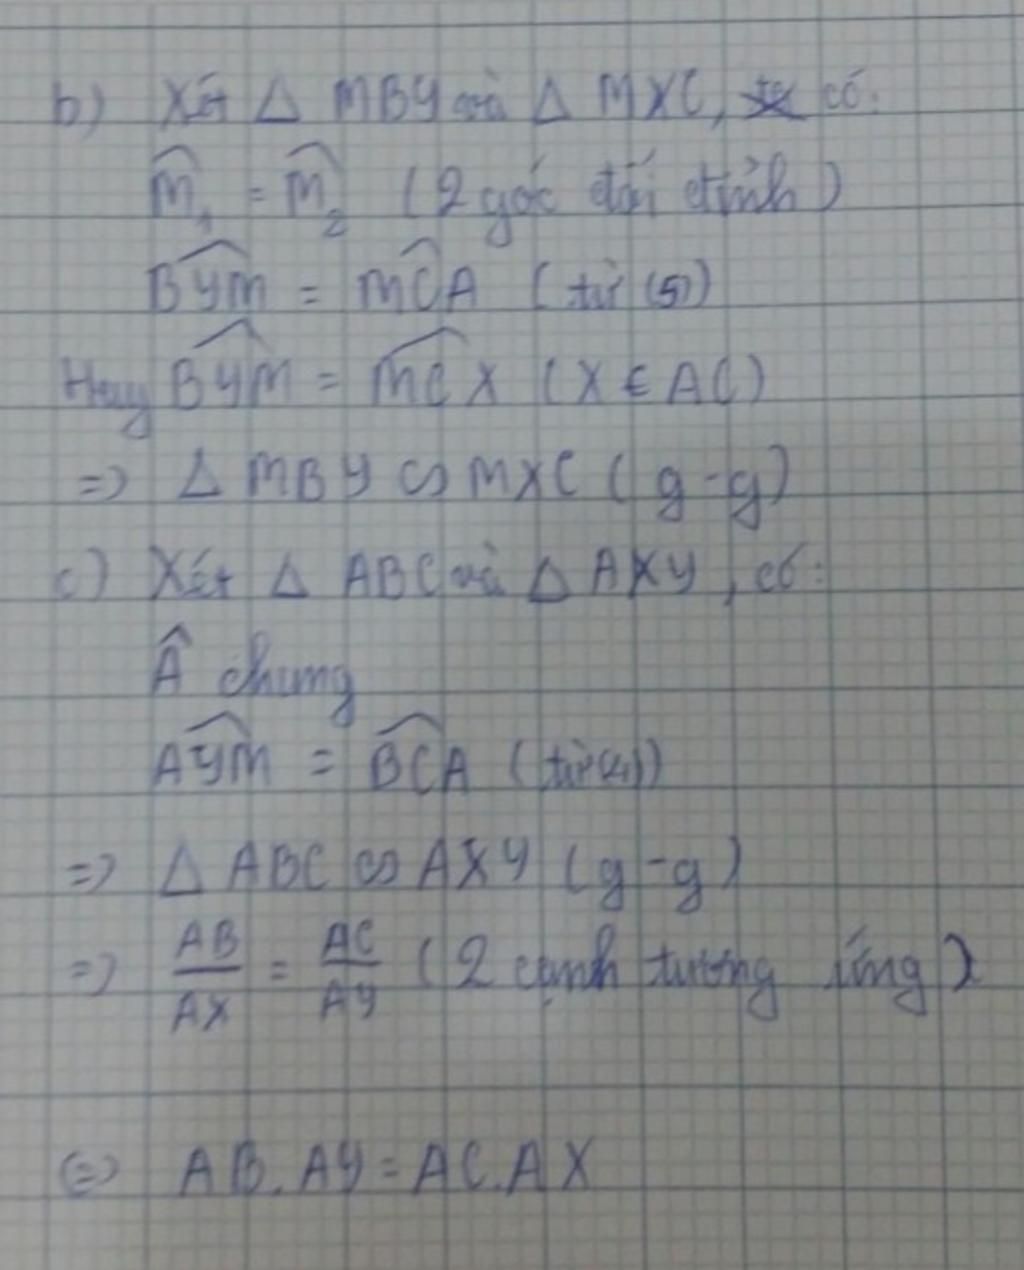 b) Xét △ MBY và △ MXC, ta có:
M̂₁ = M̂₂ (2 góc đối đỉnh)
BŶM = MĈA (từ (5))
Hay BŶM = MĈX (X ∈ AC)
=> △ MBY ∽ MXC (g-g)
c) Xét △ ABC và △ AXY, có:
Â chung
AŶM = BĈA (từ (4))
=> △ ABC ∽ AXY (g-g)
=> AB/AX = AC/AY (2 cạnh tương ứng)
(=) AB.AY = AC.AX